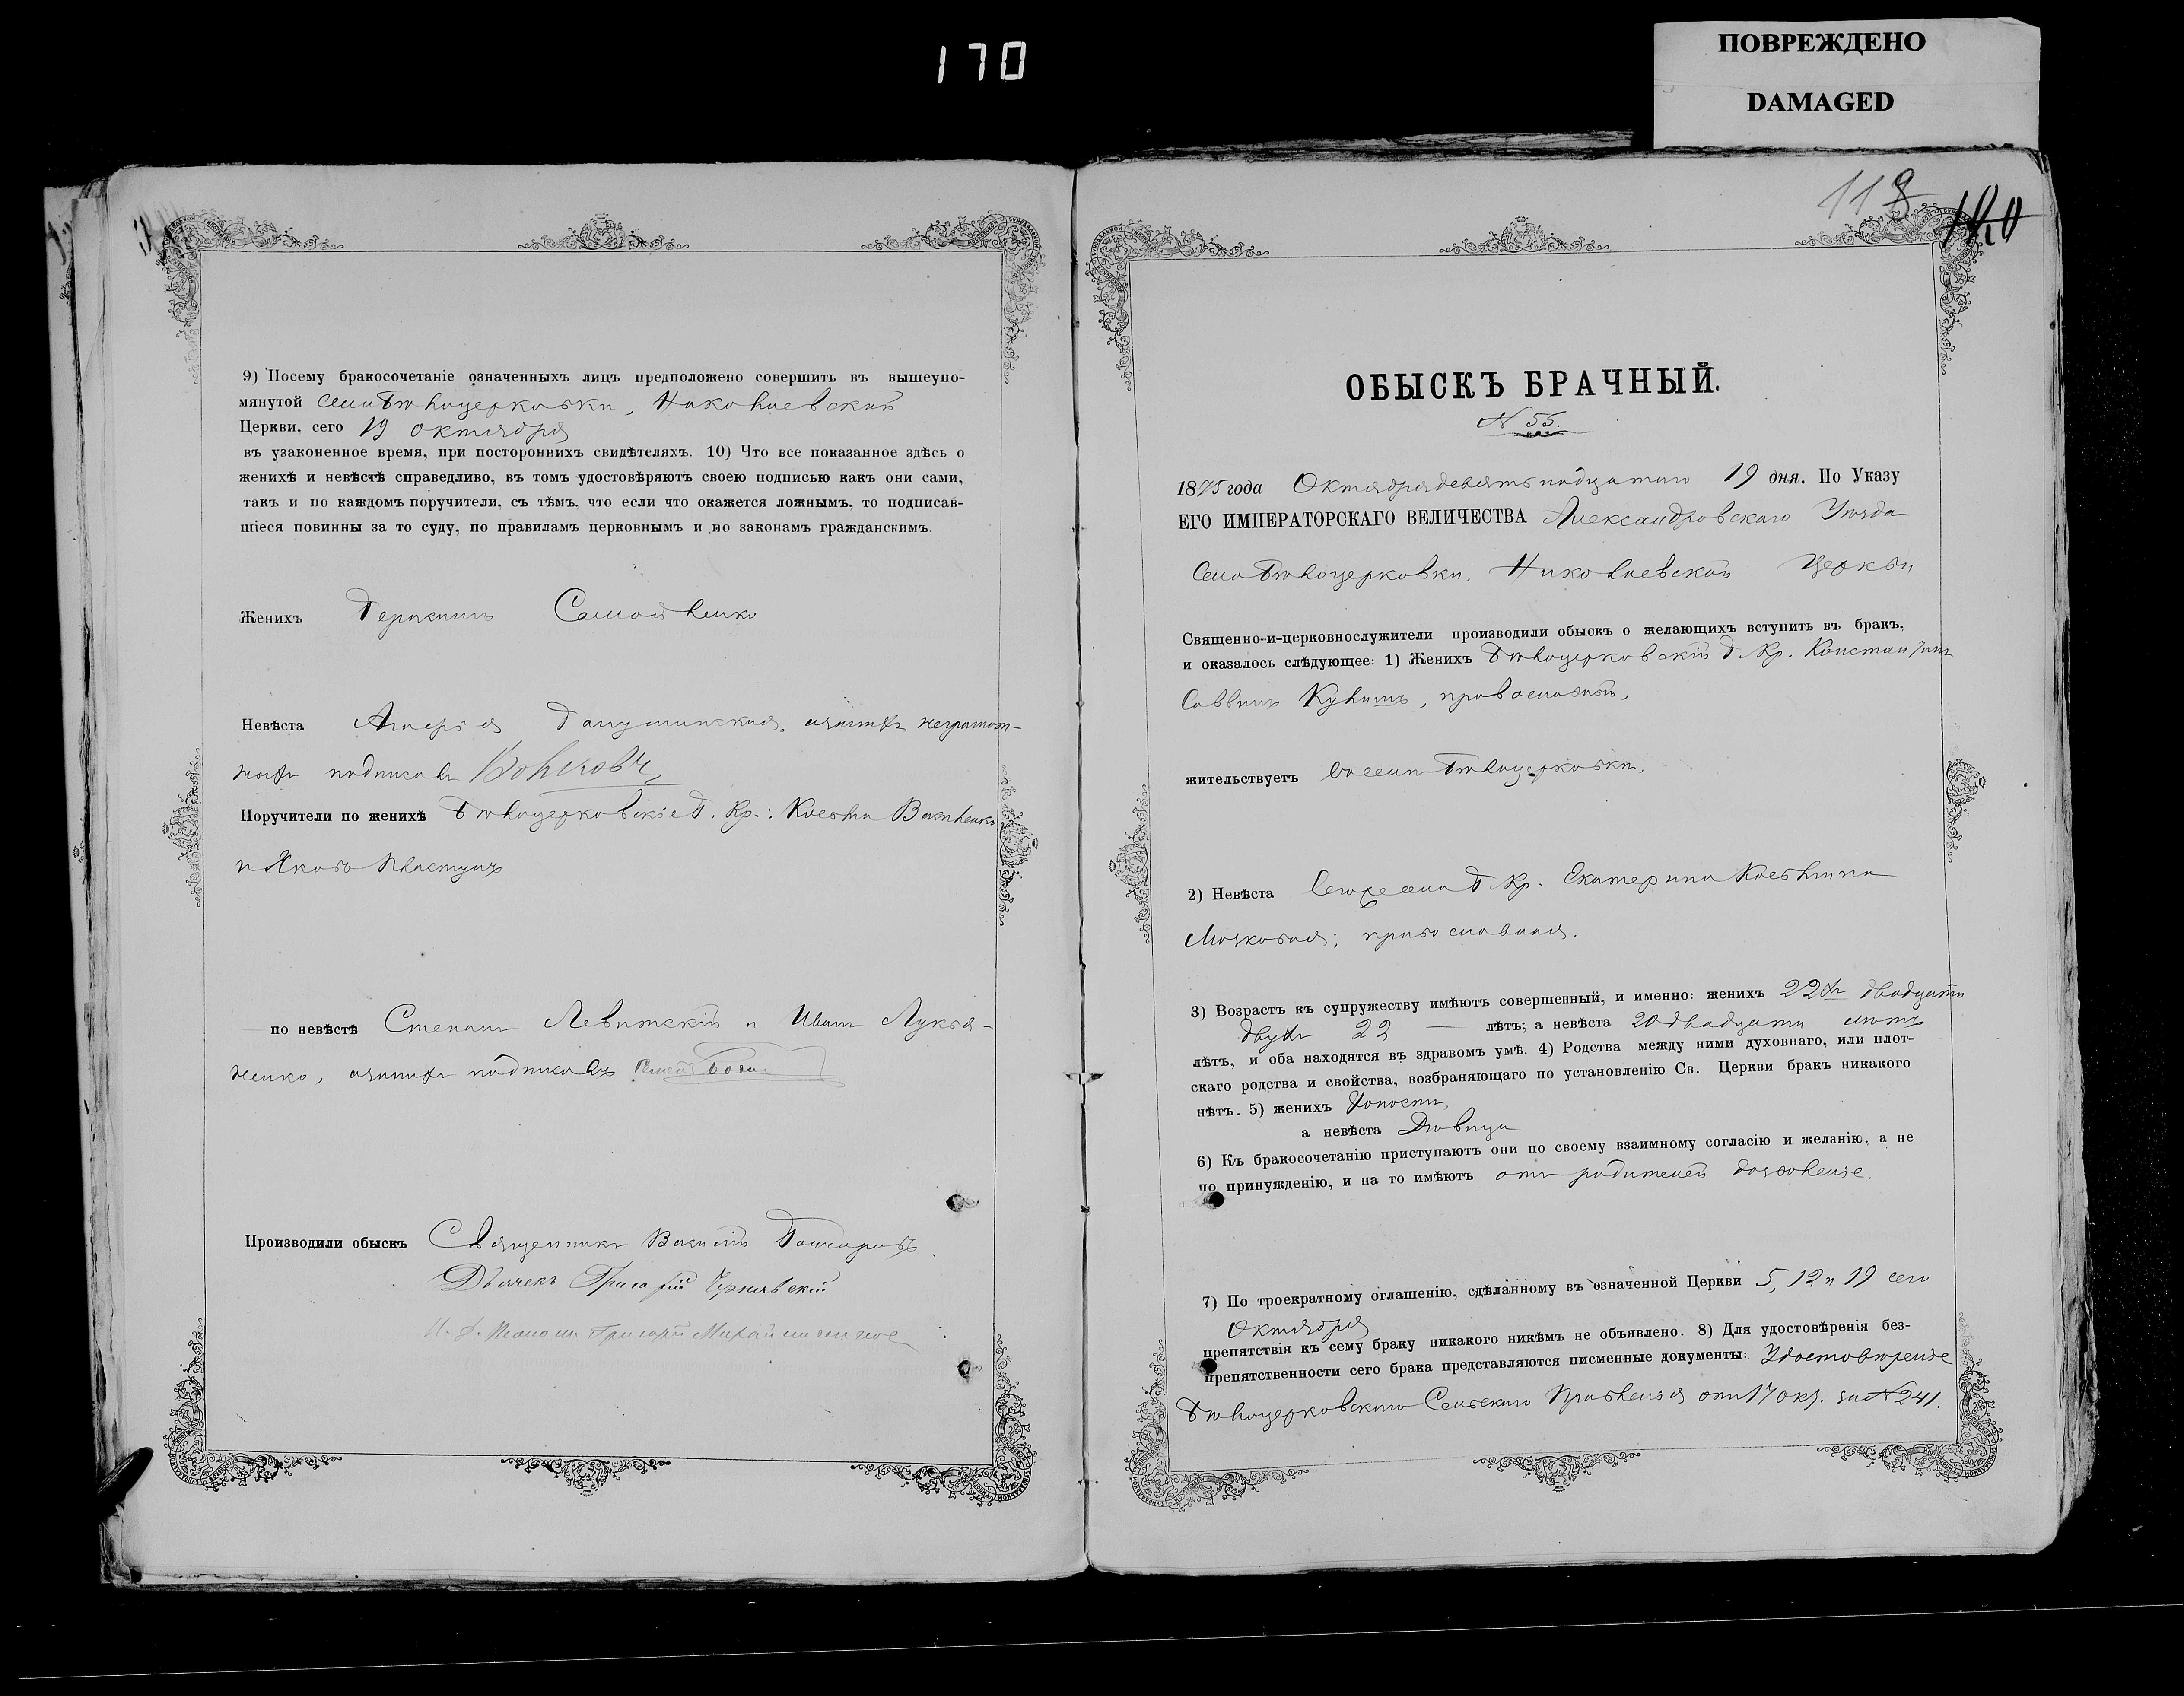 170
ПОВРЕЖДЕНО
DAMAGED
9) Посему бракосочетаніе означенныхъ лицъ предположено совершить въ вышеупо-
мянутой села Бѣлоцерковки, Николаевской
Церкви, сего 19 октября
въ узаконенное время, при постороннихъ свидѣтеляхъ. 10) Что все показанное здѣсь о
женихѣ и невѣстѣ справедливо, въ томъ удостовѣряютъ своею подписью какъ они сами,
такъ и по каждомъ поручители, съ тѣмъ, что если что окажется ложнымъ, то подписав-
шіеся повинны за то суду, по правиламъ церковнымъ и по законамъ гражданскимъ.
Женихъ Герасимъ Самойленко
Невѣста неграмот-
ныхъ подписалъ
Поручители по женихѣ Бѣлоцерковскіе Г. Кр.:
и Яковъ Пластунъ
по невѣстѣ Степанъ Левитскій и Иванъ Лукья-
ненко, подписалъ
Производили обыскъ Священникъ Василій Гончаровъ
Дьячекъ Григорій Чернявскій
118
120
ОБЫСКЪ БРАЧНЫЙ.
№ 55.
1875 года Октября девятнадцатаго 19 дня. По Указу
ЕГО ИМПЕРАТОРСКАГО ВЕЛИЧЕСТВА Александровскаго Уѣзда
Села Бѣлоцерковки, Николаевской Церкви
Священно-и-церковнослужители производили обыскъ о желающихъ вступить въ бракъ,
и оказалось слѣдующее: 1) Женихъ Бѣлоцерковскій Г. Кр. Константинъ
Саввинъ Кулишъ, православный,
жительствуетъ въ селѣ Бѣлоцерковки,
2) Невѣста Г. Кр. Екатерина
православная.
3) Возрастъ къ супружеству имѣютъ совершенный, и именно: женихъ 22хъ двадцати
двухъ 22 — лѣтъ; а невѣста 20 двадцати лѣтъ
лѣтъ, и оба находятся въ здравомъ умѣ. 4) Родства между ними духовнаго, или плот-
скаго родства и свойства, возбраняющаго по установленію Св. Церкви бракъ никакого
нѣтъ. 5) женихъ Холостъ,
а невѣста Дѣвица
6) Къ бракосочетанію приступаютъ они по своему взаимному согласію и желанію, а не
по принужденію, и на то имѣютъ отъ родителей дозволеніе.
7) По троекратному оглашенію, сдѣланному въ означенной Церкви 5, 12 и 19 сего
Октября
препятствія къ сему браку никакого никѣмъ не объявлено. 8) Для удостовѣренія без-
препятственности сего брака представляются писменные документы: Удостовѣреніе
Бѣлоцерковскаго Сельскаго Правленія отъ 17 окт. за № 241.